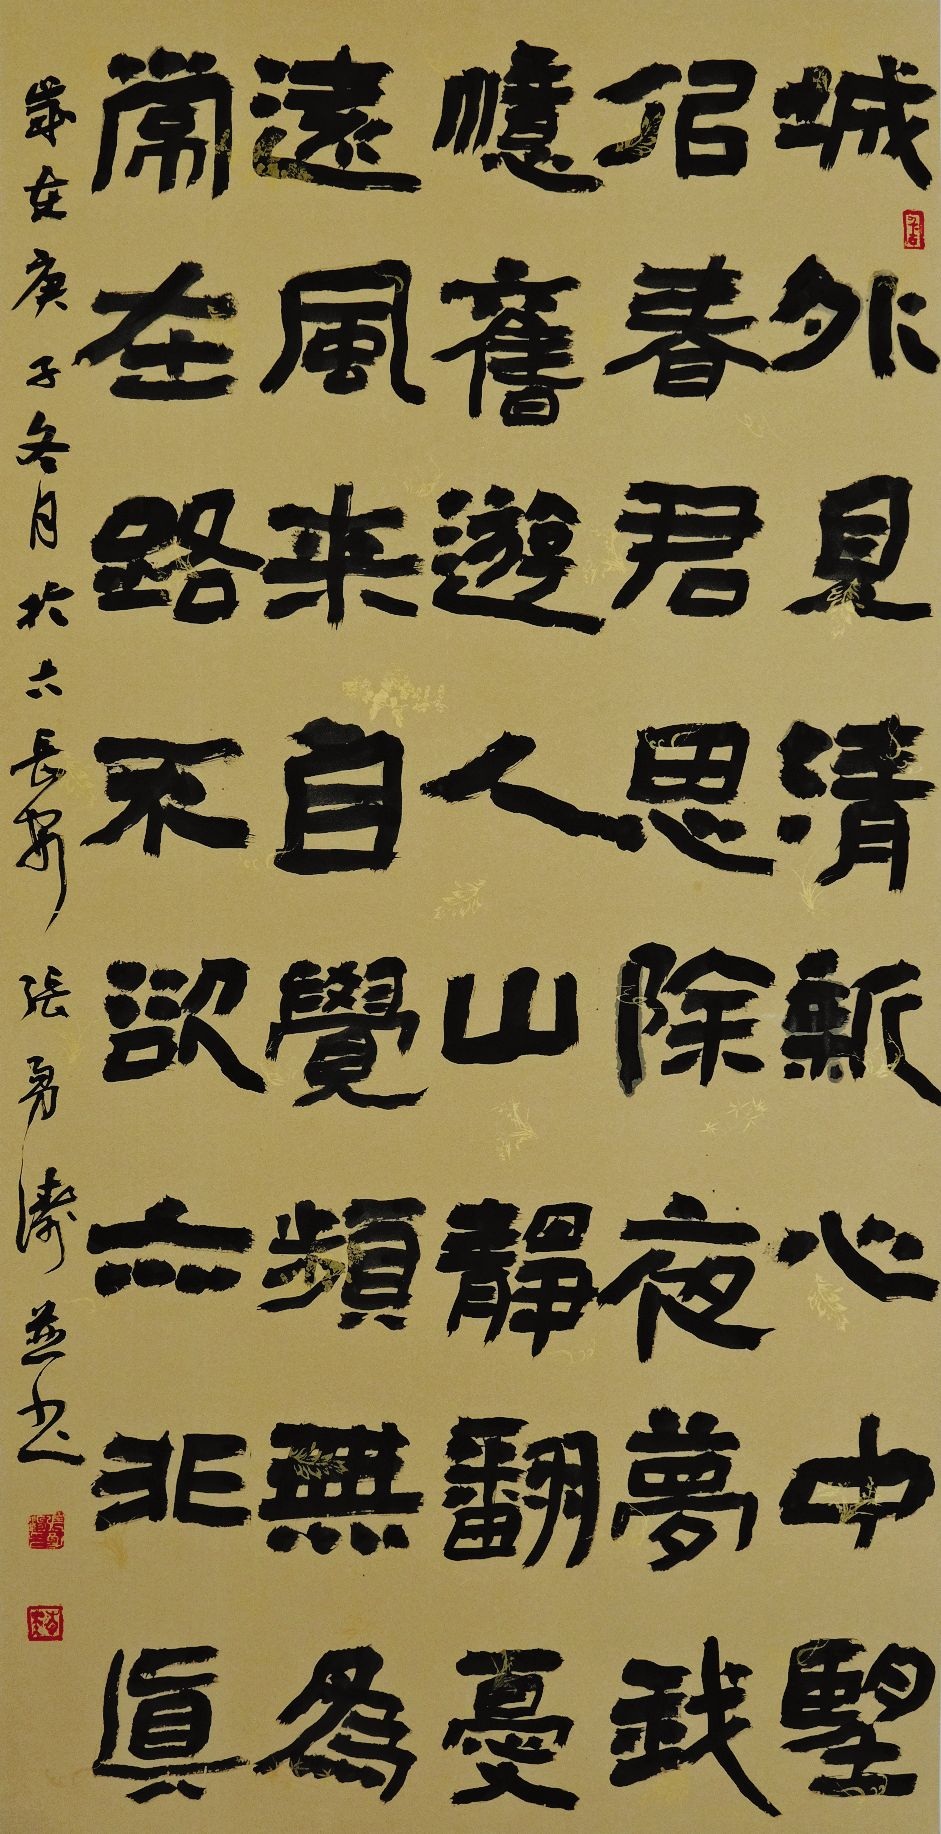 城外見清新心中望
似春君思除夜夢我
憶舊遊人山靜翻憂
遠風来自覺頻無為
常在路不欲亦非真
歲在庚子冬月於古長安張勇濤並书